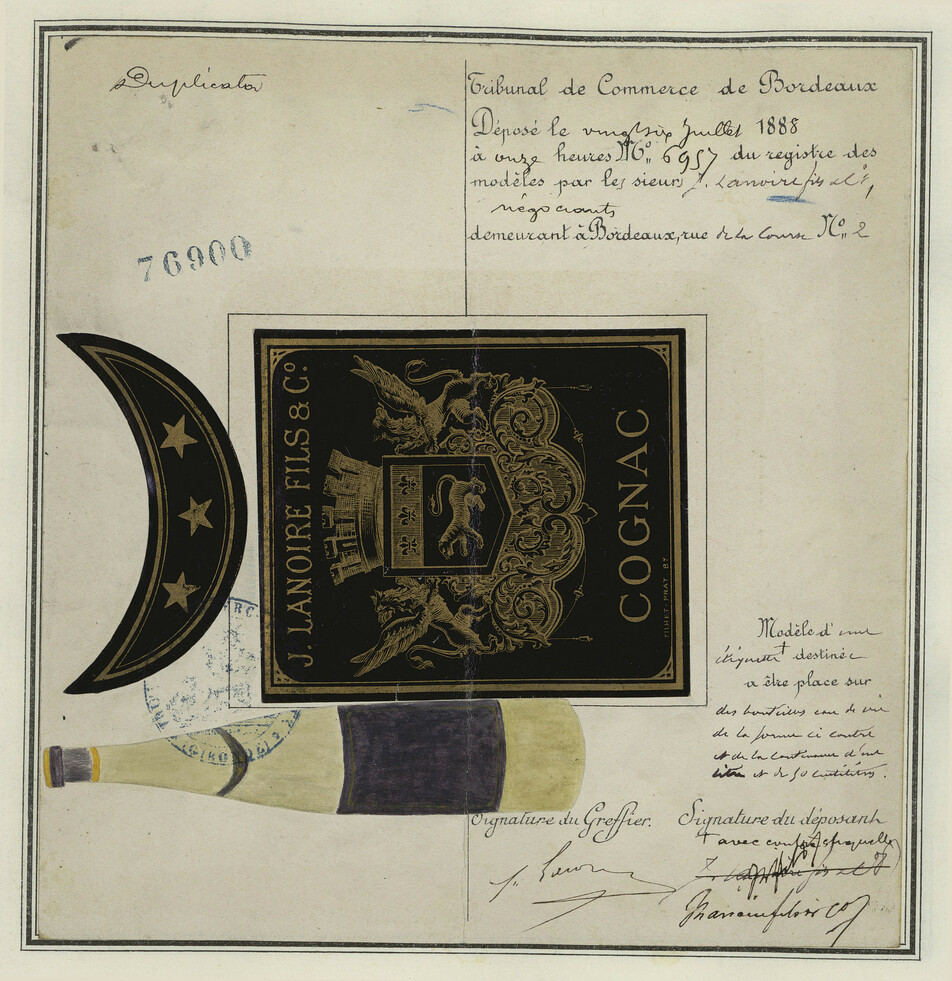 Duplicata
Tribunal de Commerce de Bordeaux
Déposé le vingt six Juillet 1888
à onze heures No. 6957 du registre des
modèles par les sieurs J. Lanoire fils et Co,
négociants
demeurant à Bordeaux, rue de la Course No. 2
76900
J. LANOIRE FILS & Co.
COGNAC
Modèle d'une
étiquette destinée
a être place sur
des bouteilles eau de vie
de la forme ci contre
et de la contenance d'un
litre et de 50 centilitres.
GIRONDE
Signature du Greffier.
Signature du déposant
avec